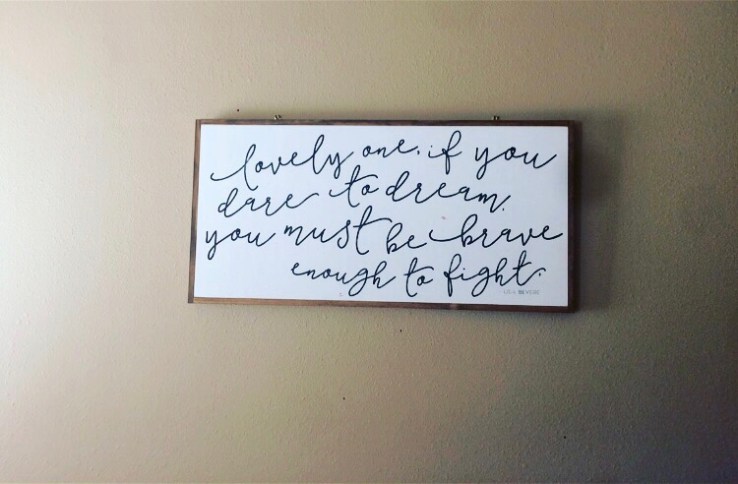 lovely one, if you
dare to dream,
you must be brave
enough to fight.